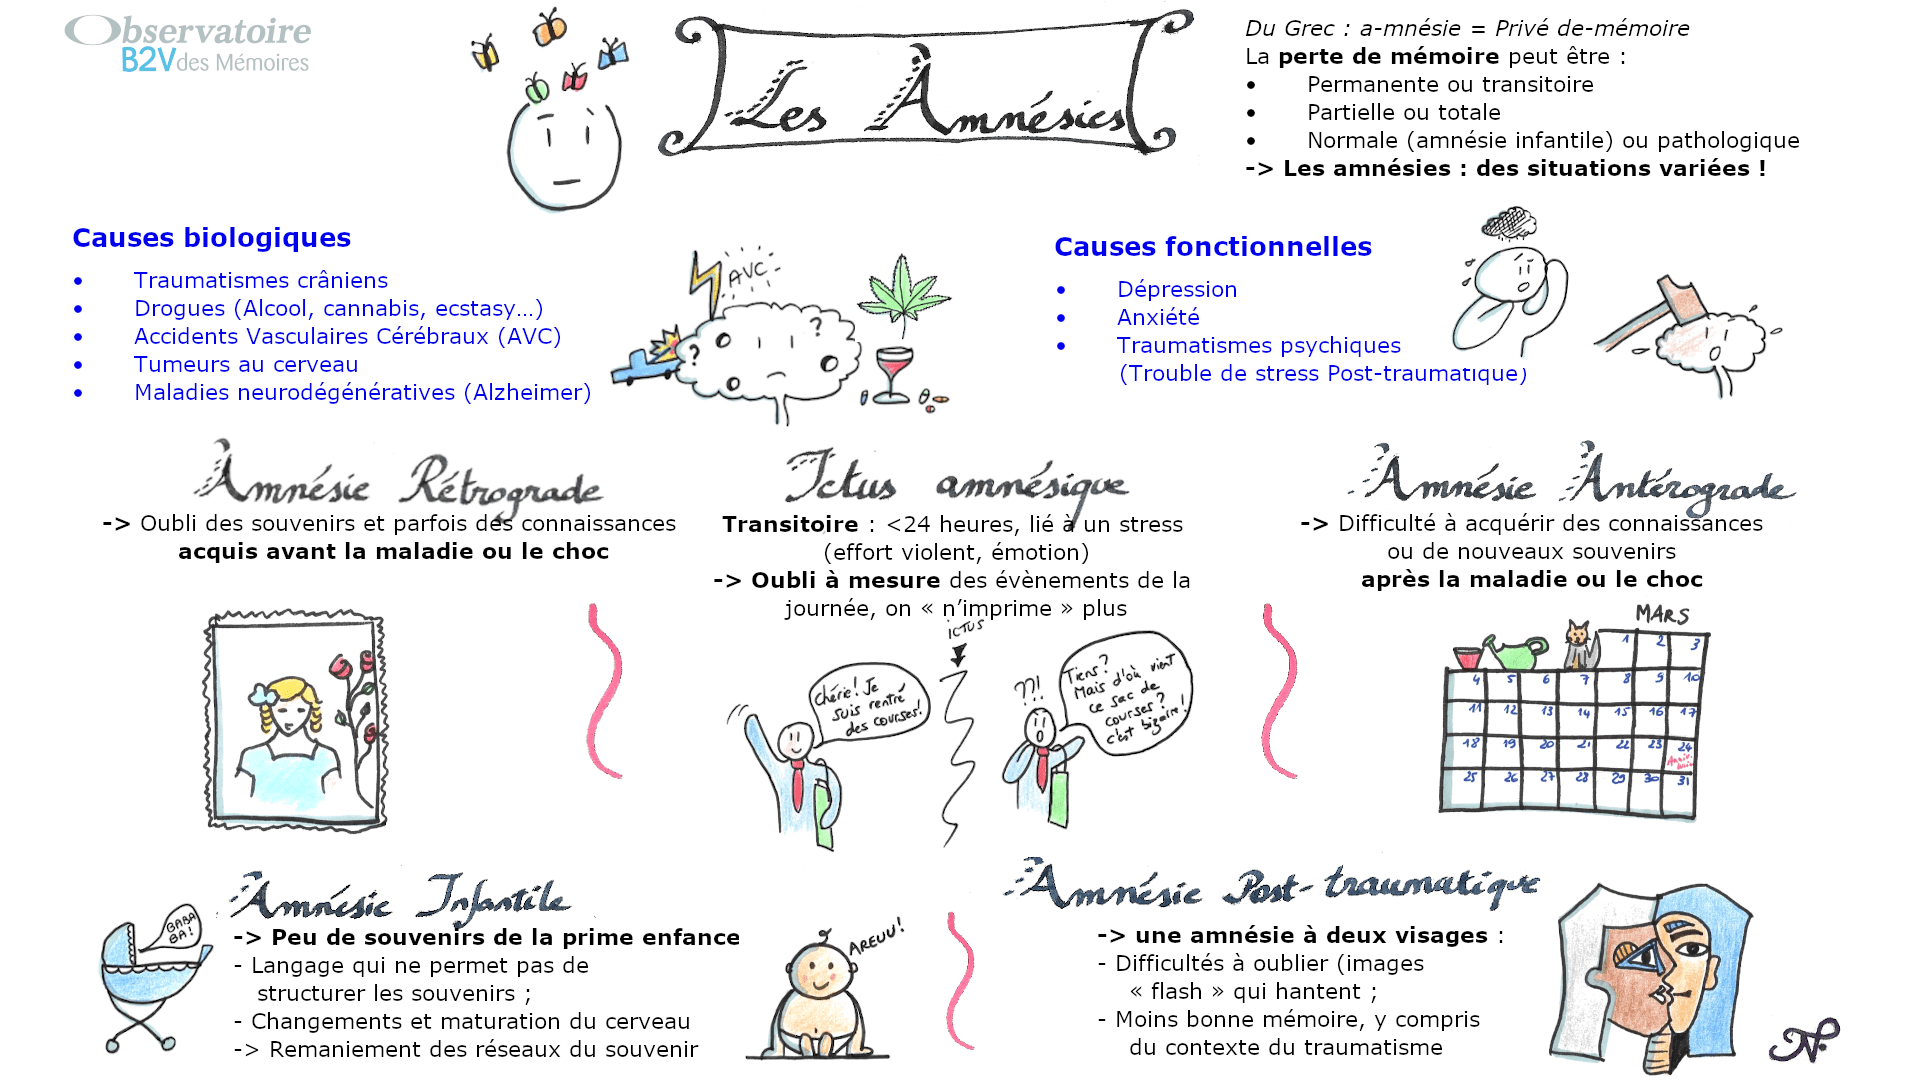 Observatoire
B2V des Mémoires
Les Amnésies
Du Grec : a-mnésie = Privé de-mémoire
La perte de mémoire peut être :
• Permanente ou transitoire
• Partielle ou totale
• Normale (amnésie infantile) ou pathologique
-> Les amnésies : des situations variées !
Causes biologiques
• Traumatismes crâniens
• Drogues (Alcool, cannabis, ecstasy...)
• Accidents Vasculaires Cérébraux (AVC)
• Tumeurs au cerveau
• Maladies neurodégénératives (Alzheimer)
AVC
?
?
Causes fonctionnelles
• Dépression
• Anxiété
• Traumatismes psychiques
(Trouble de stress Post-traumatique)
Amnésie Rétrograde
-> Oubli des souvenirs et parfois des connaissances
acquis avant la maladie ou le choc
Ictus amnésique
Transitoire : <24 heures, lié à un stress
(effort violent, émotion)
-> Oubli à mesure des évènements de la
journée, on « n’imprime » plus
ICTUS
Chérie! Je
suis rentré
des courses!
??!
Tiens?
Mais d'où vient
ce sac de
courses?
c'est bizarre!
Amnésie Antérograde
-> Difficulté à acquérir des connaissances
ou de nouveaux souvenirs
après la maladie ou le choc
MARS
1 2 3
4 5 6 7 8 9 10
11 12 13 14 15 16 17
18 19 20 21 22 23 24
Anniversaire
25 26 27 28 29 30 31
Amnésie Infantile
BABA
BA!
-> Peu de souvenirs de la prime enfance
- Langage qui ne permet pas de
structurer les souvenirs ;
- Changements et maturation du cerveau
-> Remaniement des réseaux du souvenir
AREUU!
Amnésie Post-traumatique
-> une amnésie à deux visages :
- Difficultés à oublier (images
« flash » qui hantent ;
- Moins bonne mémoire, y compris
du contexte du traumatisme